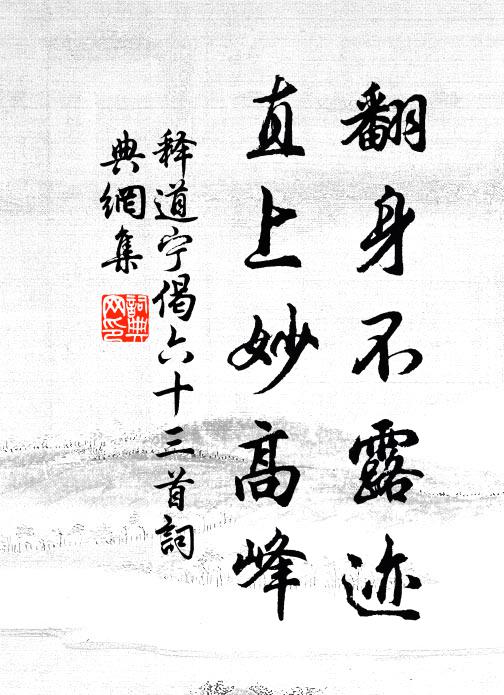 翻身不露迹
直上妙高峰
释道宁偈六十三首詞
典網集
詞典网印